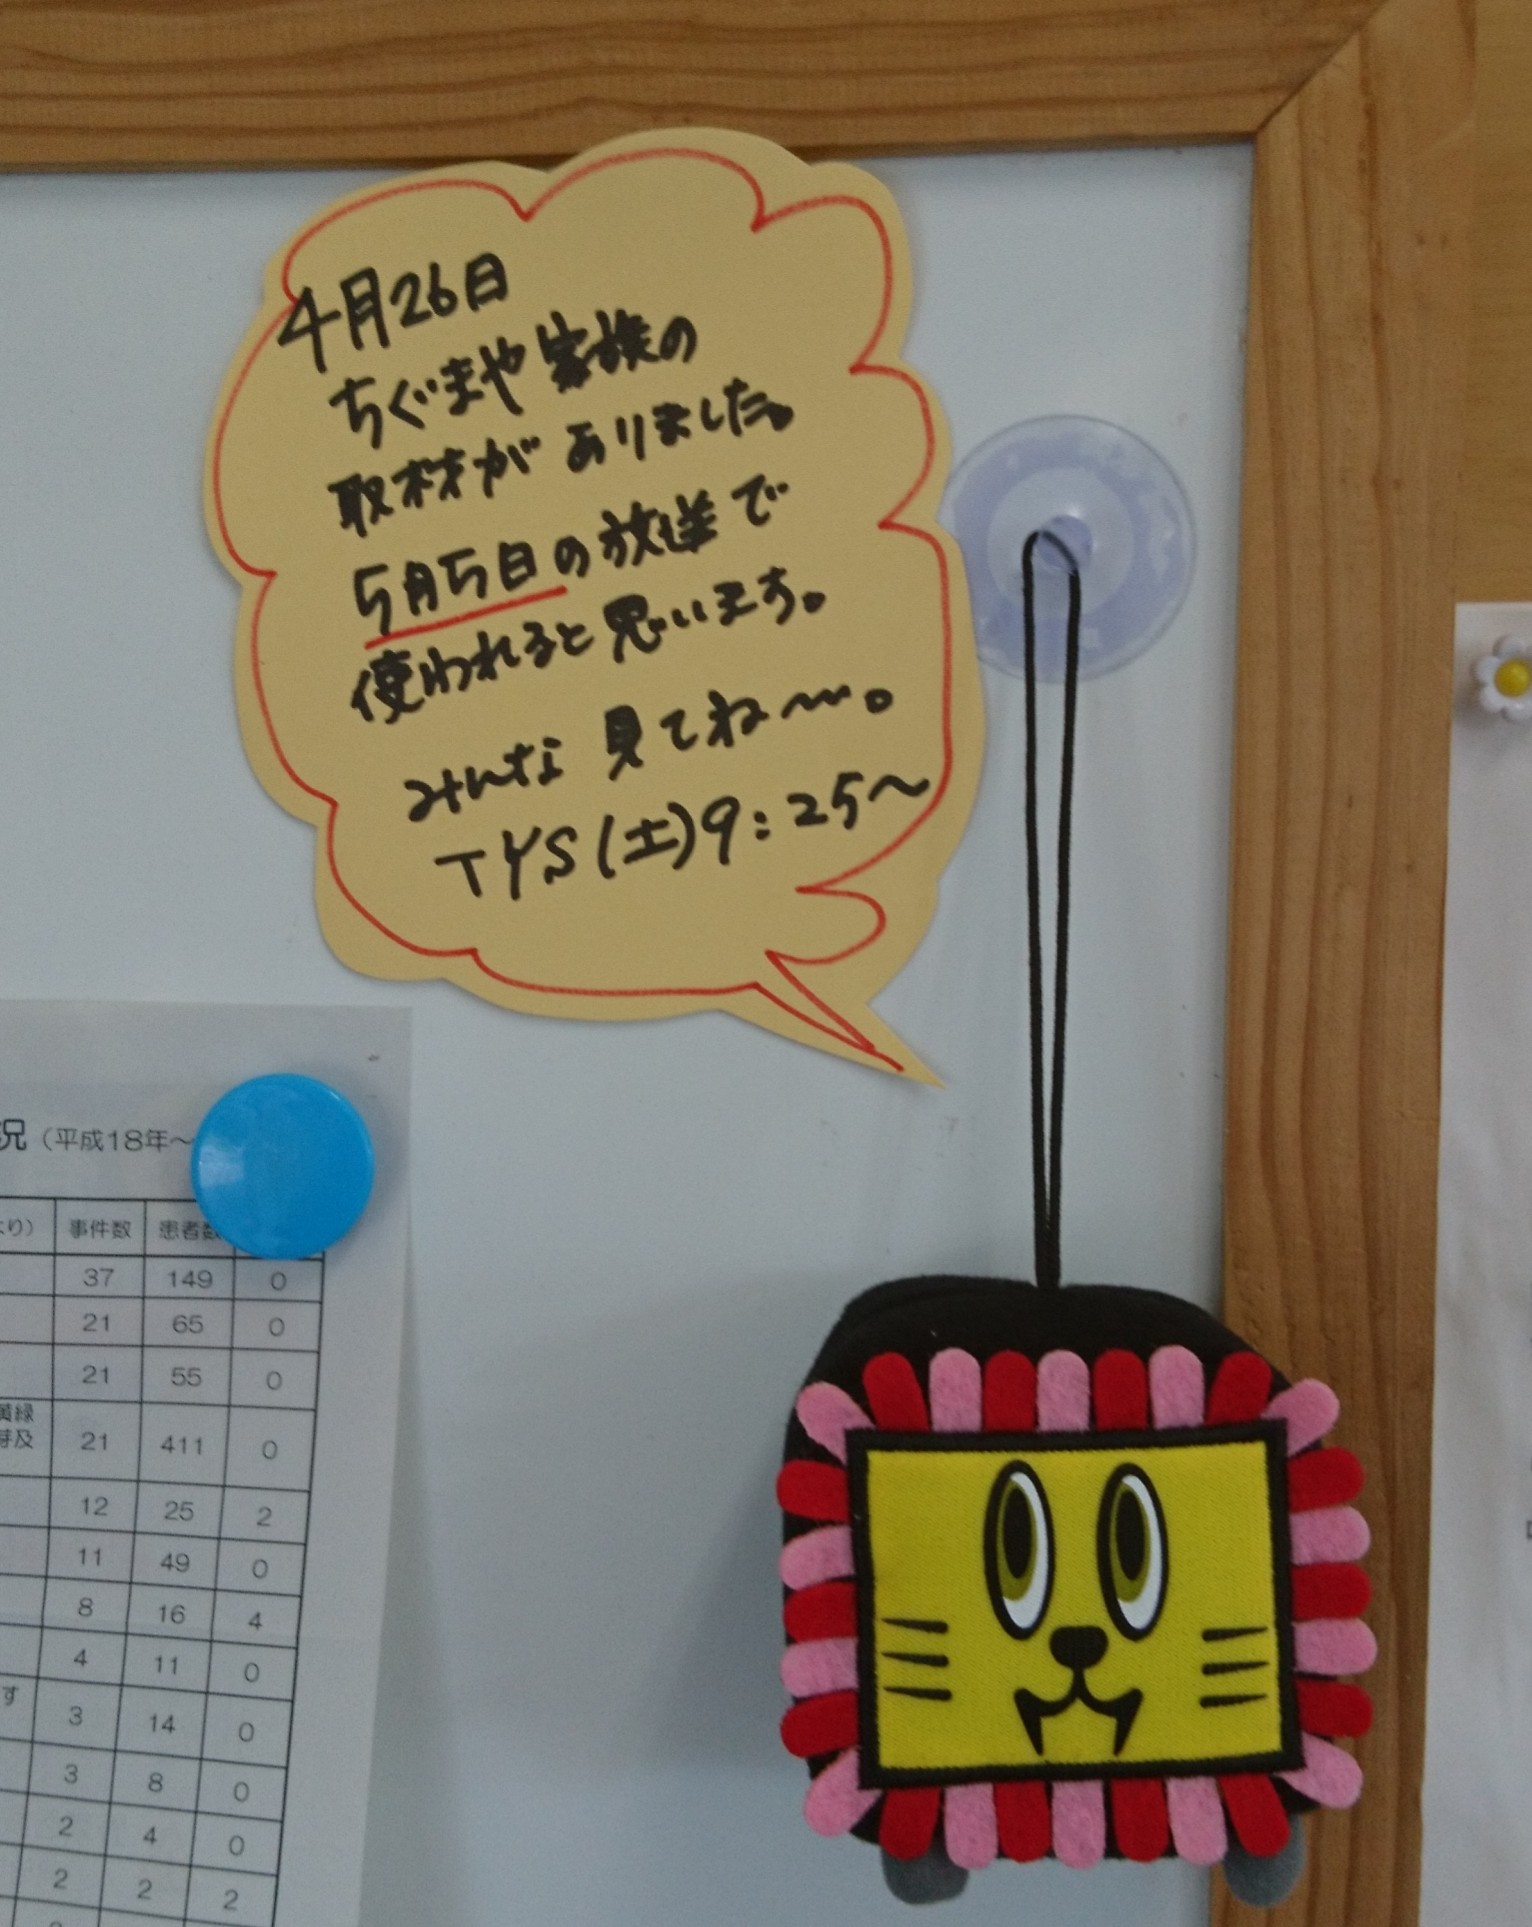 4月26日
ちぐまや家族の
取材がありました。
5月5日の放送で
使われると思います。
みんな見てね〜。
TYS(土)9:25〜
況(平成18年〜
より) 事件数 患者数
37 149 0
21 65 0
21 55 0
黄緑
芽及 21 411 0
12 25 2
11 49 0
8 16 4
4 11 0
す 3 14 0
3 8 0
2 4 0
2 2 2